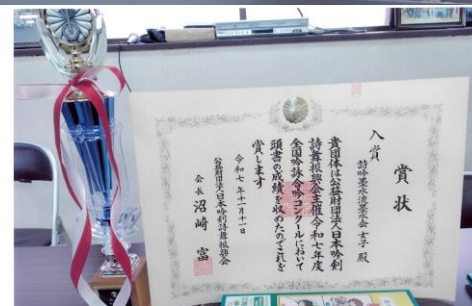 賞状
入賞
詩吟墨水流墨水会 女子 殿
貴団体は公益財団法人日本吟剣
詩舞振興会主催令和七年度
全国吟詠合吟コンクールにおいて
頭書の成績を収めたのでこれを
賞します
令和七年十一月十一日
公益財団法人日本吟剣詩舞振興会
会長 沼崎 富